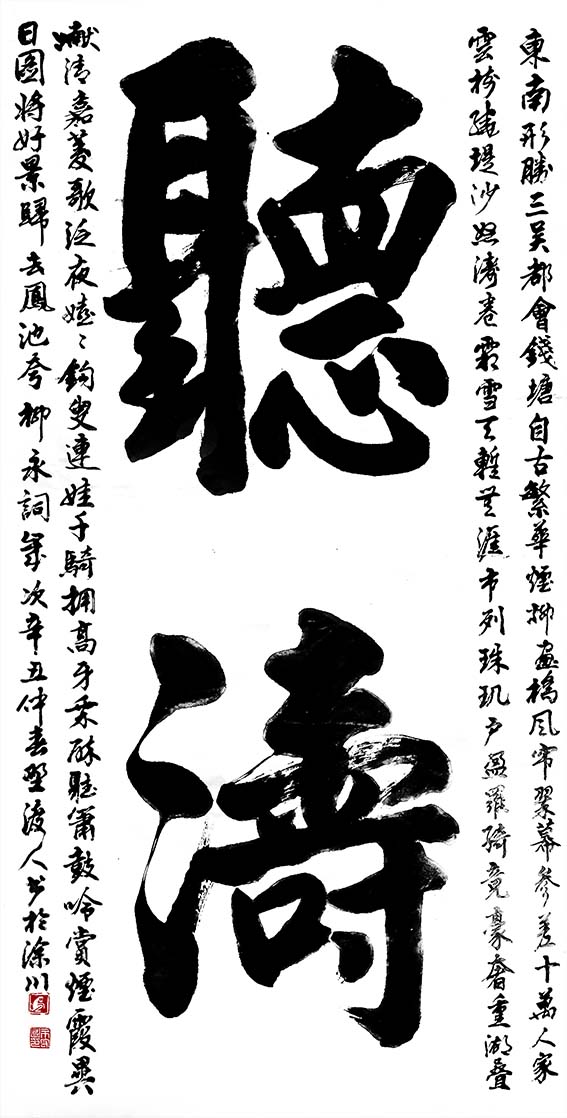 東南形勝三吴都會錢塘自古繁華煙柳畫橋風帘翠幕參差十萬人家
雲樹繞堤沙怒濤卷霜雪天塹無涯市列珠玑户盈羅綺競豪奢重湖疊
聽濤
巘清嘉菱歌泛夜嬉〻钓叟連娃千騎拥高牙乘醉聽簫鼓吟賞煙霞異
日圖將好景歸去鳳池夸柳永詞歲次辛丑仲春野渡人書於滁川